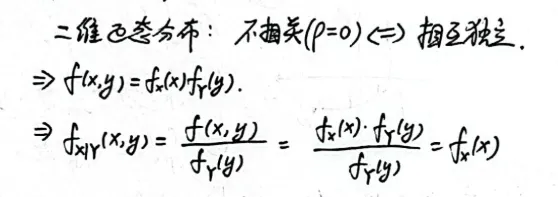 二维正态分布： 不相关(ρ=0) <=> 相互独立.
⇒ f(x,y)=fx(x)fY(y).
⇒ fX|Y(x,y) = f(x,y) / fY(y) = fx(x)·fY(y) / fY(y) = fx(x)